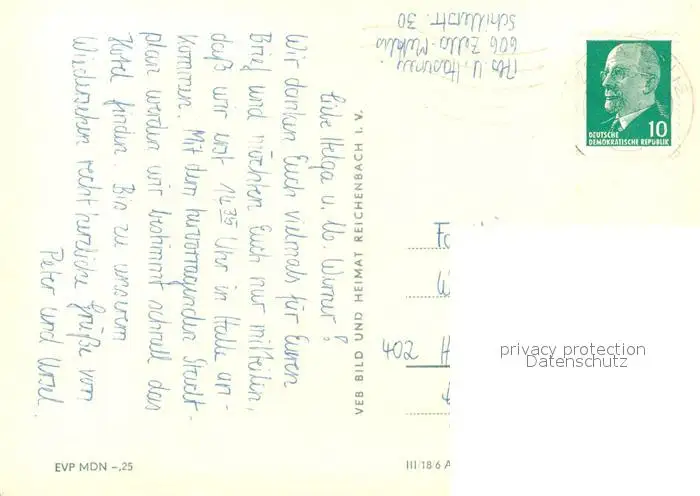 Liebe Helga u. lb. Werner!
Wir danken Euch vielmals für Euren
Brief und möchten Euch nur mitteilen,
daß wir erst 14.35 Uhr in Halle an-
kommen. Mit dem hervorragenden Stadt-
plan werden wir bestimmt schnell das
Hotel finden. Bis zu unserem
Wiedersehen recht herzliche Grüße von
Peter und Ursel.
606 Zella-Mehlis
Schillerstr. 30
DEUTSCHE
DEMOKRATISCHE REPUBLIK
10
VEB BILD UND HEIMAT REICHENBACH I. V.
402 H
privacy protection
Datenschutz
EVP MDN -,25
III/18/6 A